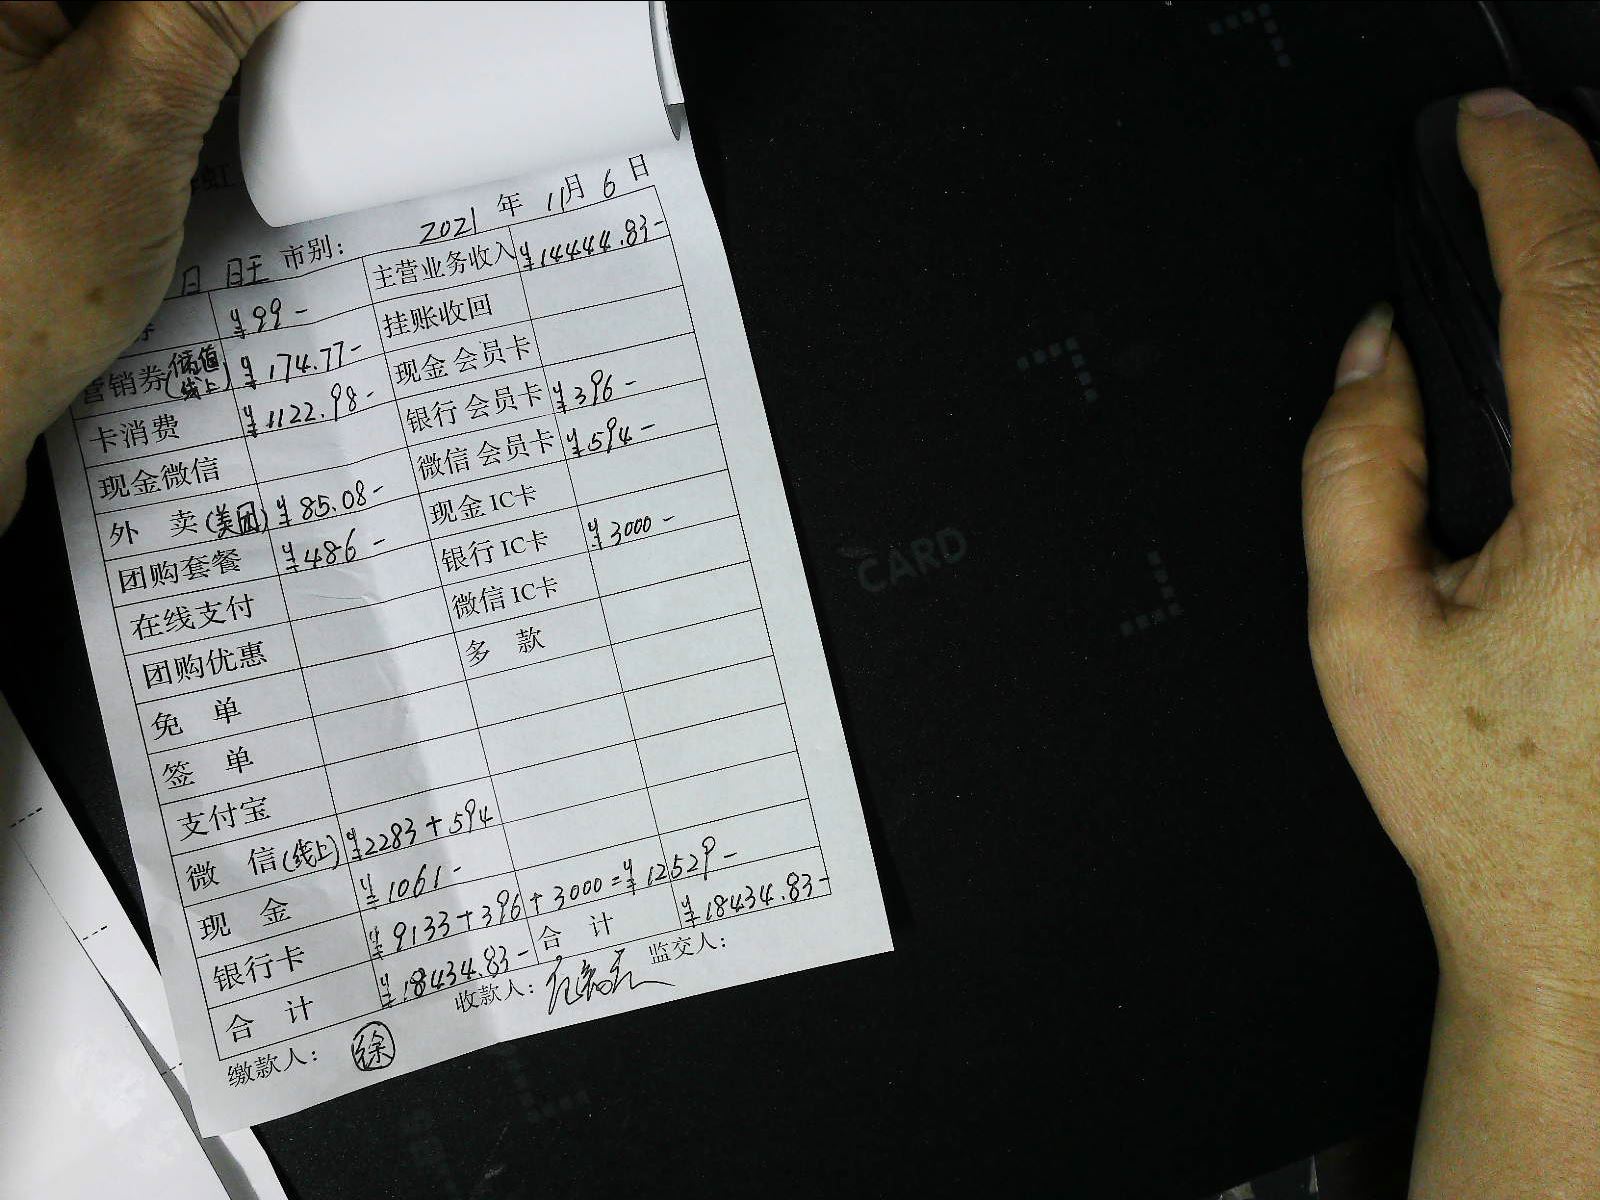 2021 年 11月 6 日
日 市别：
券 ¥99- 主营业务收入 ¥14444.83-
营销券(储值线上) ¥174.77- 挂账收回
卡消费 ¥1122.98- 现金 会员卡
现金微信 银行 会员卡 ¥396-
外 卖(美团) ¥85.08- 微信 会员卡 ¥594-
团购套餐 ¥486- 现金 IC卡
在线支付 银行 IC卡 ¥3000-
团购优惠 微信 IC卡
免 单 多 款
签 单
支付宝
微 信(线上) ¥2283+594
现 金 ¥1061-
银行卡 ¥9133+396+3000=¥12529-
合 计 ¥18434.83- 合 计 ¥18434.83-
缴款人： 徐 收款人： 监交人：
CARD